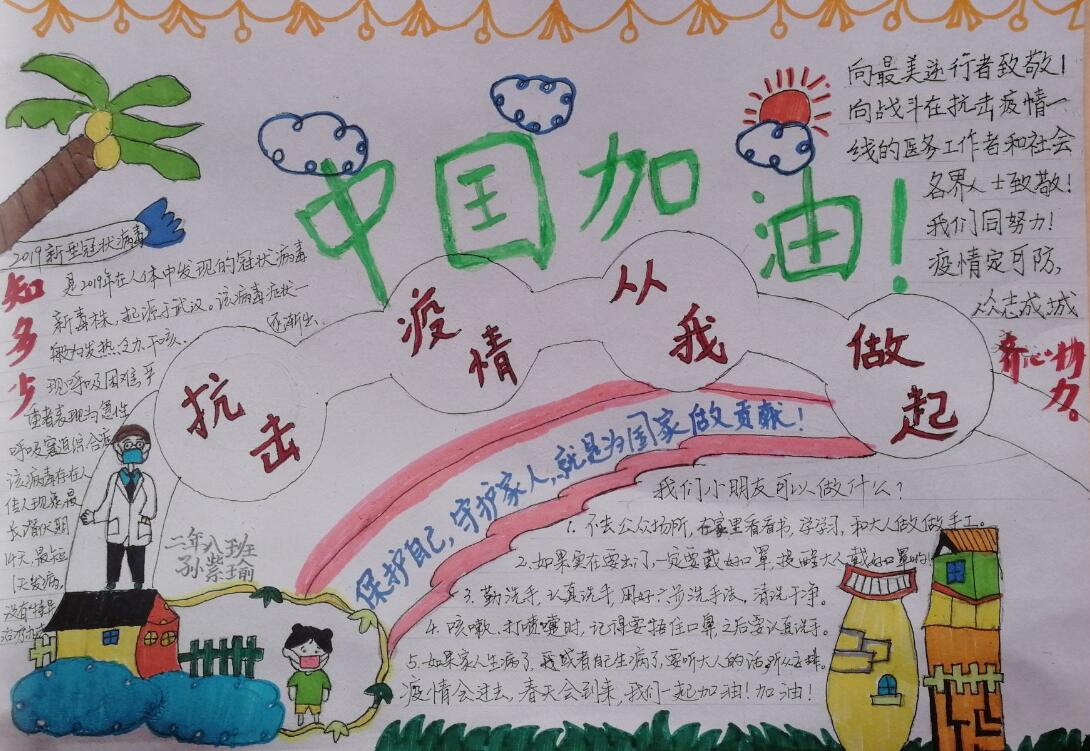 中国加油！
抗击
疫情
从我
做起
向最美逆行者致敬！
向战斗在抗击疫情一
线的医务工作者和社会
各界人士致敬！
我们同努力！
疫情定可防，
众志成城
齐心协力。
知多少
2019新型冠状病毒
是2019年在人体中发现的冠状病毒
新毒株，起源于武汉。该病毒症状一
般为发热、乏力、干咳、
逐渐出
现呼吸困难，严
重者表现为急性
呼吸窘迫综合症
该病毒存在人
传人现象，最
长潜伏期
14天，最短
1天发病，
没有特异
治疗方法
二年八班
孙紫瑜
保护自己，守护家人，就是为国家做贡献！
我们小朋友可以做什么？
1.不去公众场所，在家里看看书，学学习，和大人做做手工。
2.如果实在要出门一定要戴好口罩，提醒大人戴好口罩
3.勤洗手，认真洗手，用好六步洗手法，清洗干净。
4.咳嗽、打喷嚏时，记得要捂住口鼻之后要认真洗手。
5.如果家人生病了，或者自己生病了，要听大人的话，听从安排。
疫情会过去，春天会到来，我们一起加油！加油！